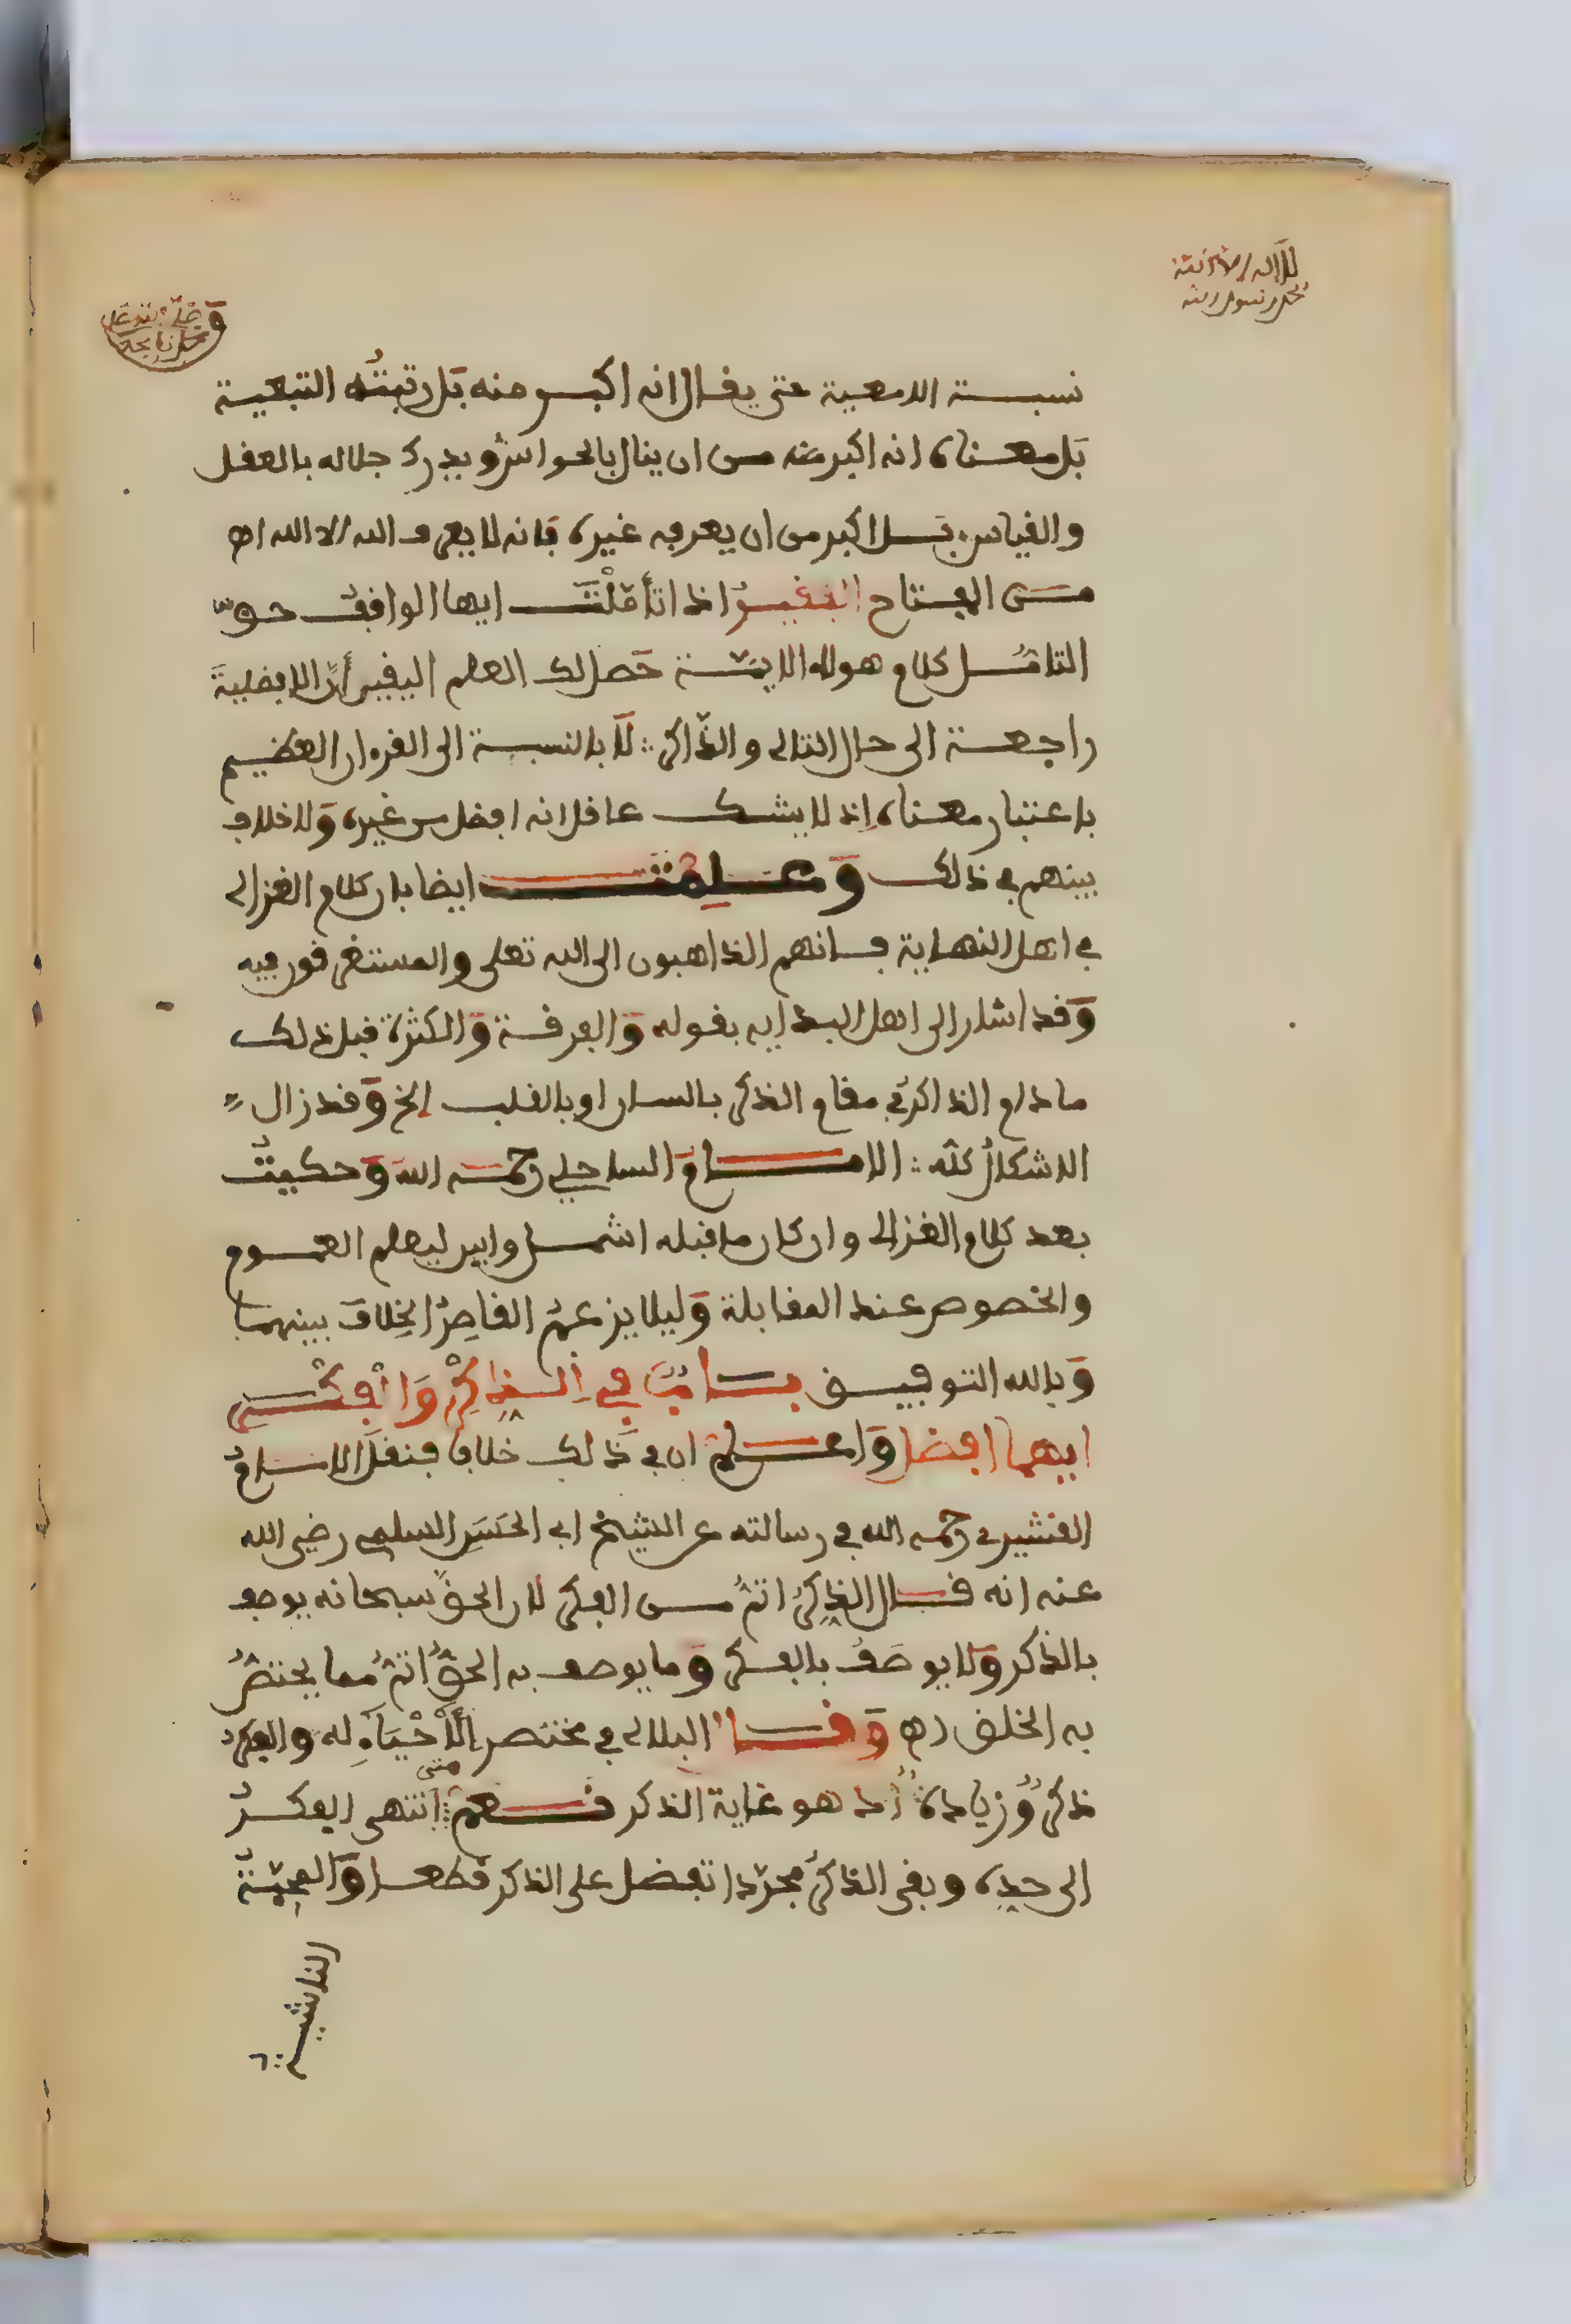 لا اله الا الله
محمد رسول الله
نسبة المعية حتى يقال انه اكبر منه بل رتبته التبعية
بل معناه انه اكبر منه من ان ينال بالحواس ويدرك جلاله بالعقل
والقياس بل اكبر من ان يعرفه غيره فانه لا يعرف الله الا الله اه
من المفتاح اذا تأملت ايها الواقف حق
التأمل كلام هولاء الايمة حصل لك العلم اليقين أن الافضلية
راجعة الى حال التالى والذاكر لا بالنسبة الى القرءان العظيم
باعتبار معناه اذ لا يشك عاقل انه افضل من غيره ولا خلاف
بينهم في ذلك وعلمت ايضا بان كلام الغزالى
في اهل النهاية فانهم الذاهبون الى الله تعلى والمستغرقون فيه
وقد اشار الى اهل البداية بقوله والفرقة والكثرة قبل ذلك
ما دام الذاكر في مقام الذكر باللسان او بالقلب الخ وقد زال
الاشكال كله الامام الساحلي رحمه الله وحكيت
بعد كلام الغزالى وان كان ما قبله اشمل وابين ليعلم العموم
والخصوص عند المقابلة وليلا يزعم القاصر الخلاف بينهما
وبالله التوفيق باب في الذكر والفكر
ايهما افضل واعلم ان في ذلك خلافا فنقل الامام
القشيرى رحمه الله في رسالته عن الشيخ ابى الحسن السلمى رضي الله
عنه انه قال الذكر اتم من الفكر لان الحق سبحانه يوصف
بالذكر ولا يوصف بالفكر وما يوصف به الحق اتم مما يختص
به الخلق اه وقال البلالى في مختصر الأحياء له والفكر
ذكر وزيادة اذ هو غاية الذكر فنعم متى انتهى الفكر
الى حده وبقى الذكر مجردا تفضل على الذكر قطعا والمحبة
الناشية